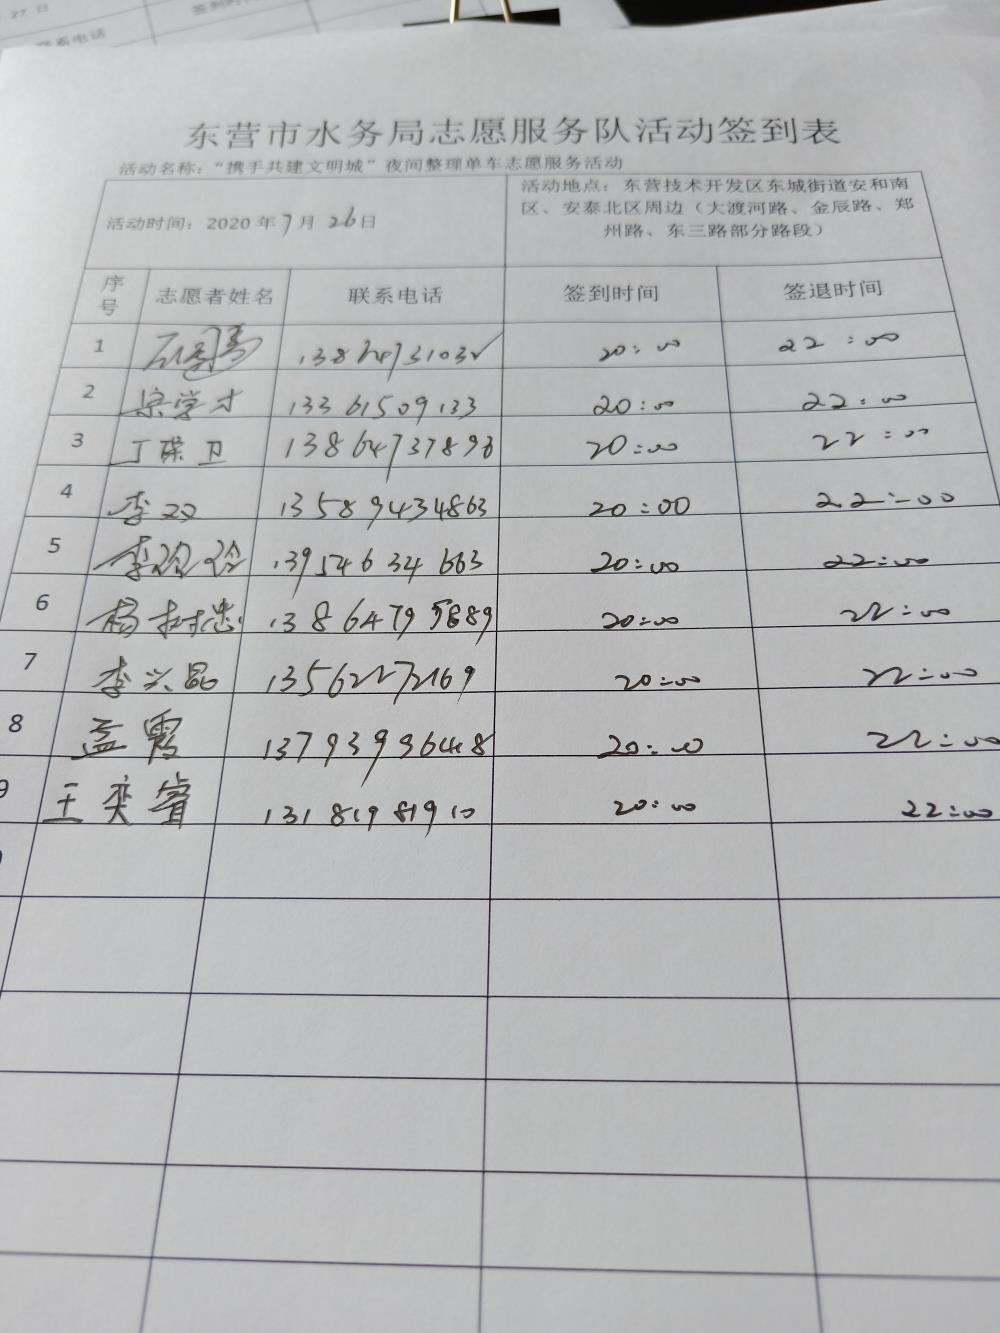 27 日
签到时间
联系电话
东营市水务局志愿服务队活动签到表
活动名称：“携手共建文明城”夜间整理单车志愿服务活动
活动时间：2020 年 7 月 26 日
活动地点：东营技术开发区东城街道安和南
区、安泰北区周边（大渡河路、金辰路、郑
州路、东三路部分路段）
序号 志愿者姓名 联系电话 签到时间 签退时间
1 20:00 22:00
2 梁学才 13361509133 20:00 22:00
3 丁葆卫 13864737893 20:00 22:00
4 李双 13589434863 20:00 22:00
5 李玲玲 13954634663 20:00 22:00
6 杨树忠 13864795889 20:00 22:00
7 李兴昌 13562272169 20:00 22:00
8 孟霞 13793996448 20:00 22:00
9 王奕睿 13181981910 20:00 22:00